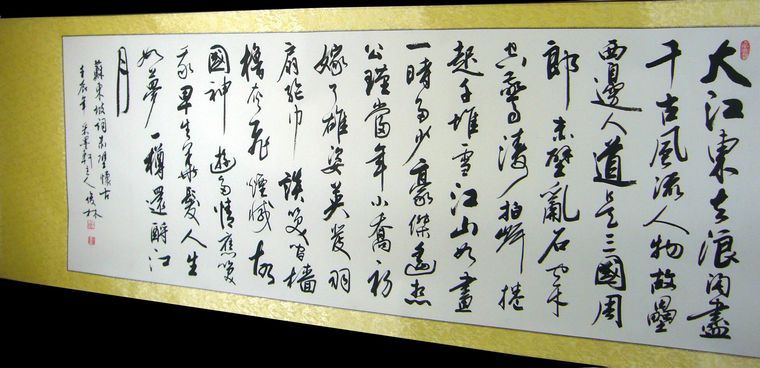 大江東去浪淘盡
千古風流人物故壘
西邊人道是三國周
郎赤壁亂石穿
空驚濤拍岸捲
起千堆雪江山如畫
一時多少豪傑遙想
公瑾當年小喬初
嫁了雄姿英發羽
扇綸巾談笑間檣
櫓灰飛煙滅故
國神遊多情應笑
我早生華髮人生
如夢一樽還酹江
月
蘇東坡詞赤壁懷古
壬辰年 墨軒主人俊林